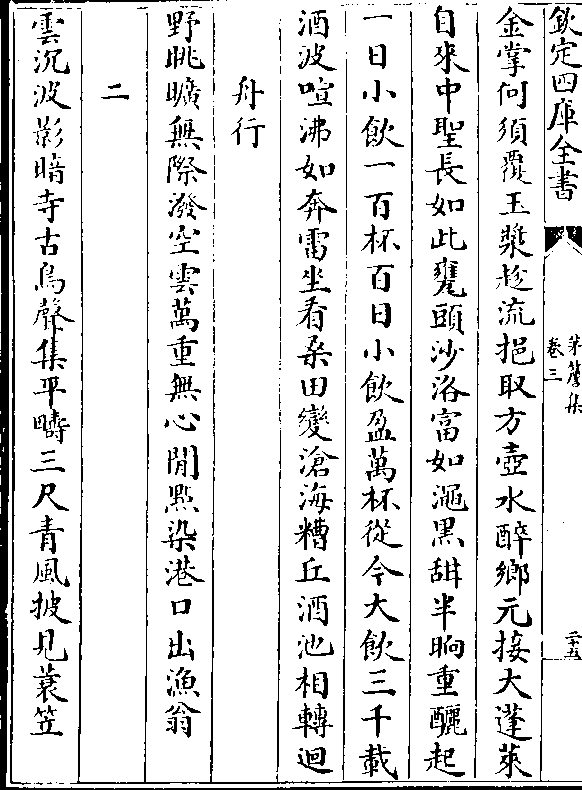 欽定四庫全書
茶簷集
卷三
三十五
金掌何須覆玉漿趁流挹取方壺水醉鄉元接大蓬萊
自來中聖長如此甕頭沙洛富如澠黒甜半晌重釃起
一日小飲一百杯百日小飲盈萬杯從今大飲三千載
酒波喧沸如奔雷坐看桑田變滄海糟丘酒池相轉迴
舟行
野眺曠無際潑空雲萬重無心閒㸃染港口出漁翁
二
雲沉波影暗寺古鳥聲集平疇三尺青風披見蓑笠